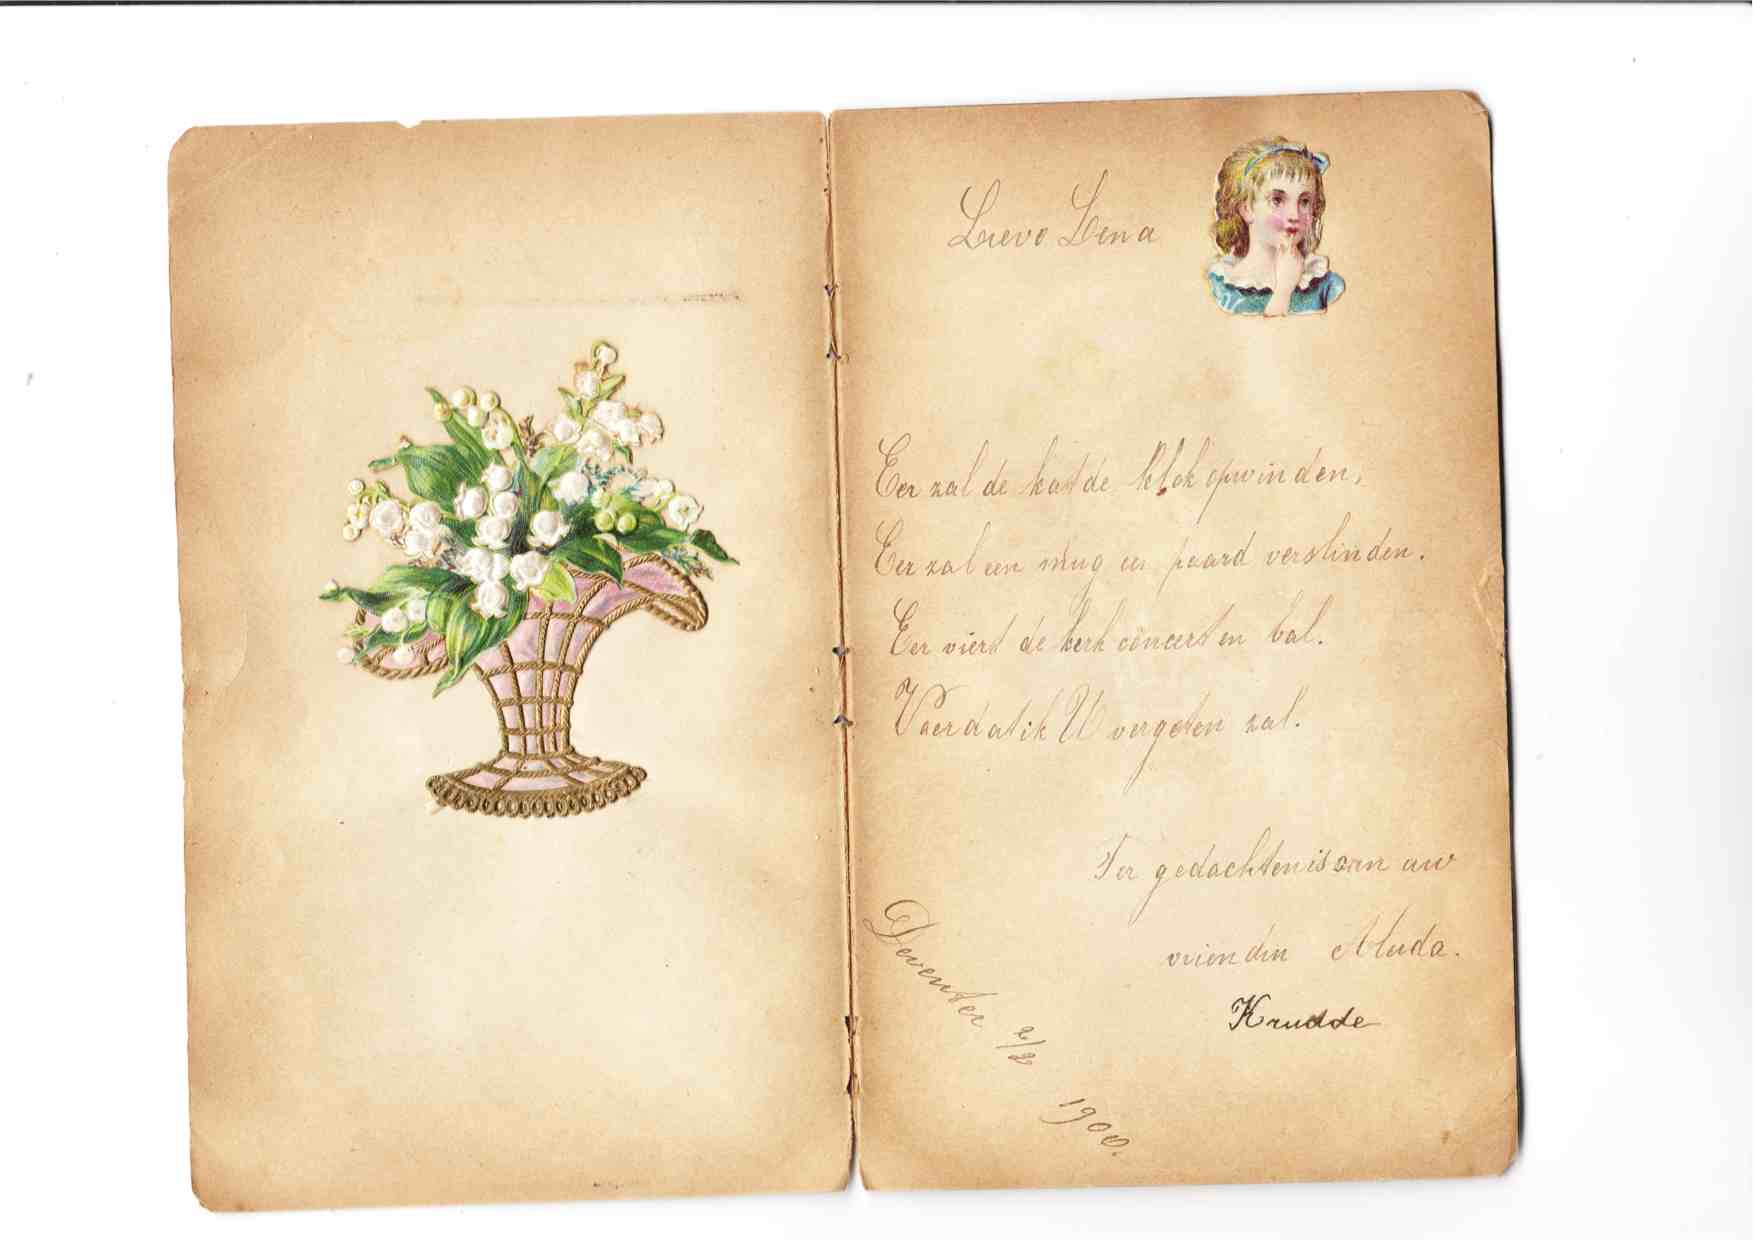 Lieve Lena
Eer zal de kat de klok opwinden,
Eer zal een mug een paard verslinden.
Eer viert de kerk concert en bal.
Voerdatik U vergeten zal.
Ter gedachtenis aan uw
vriendin Aluda.
Krudde
Deventer 2/2
1900.